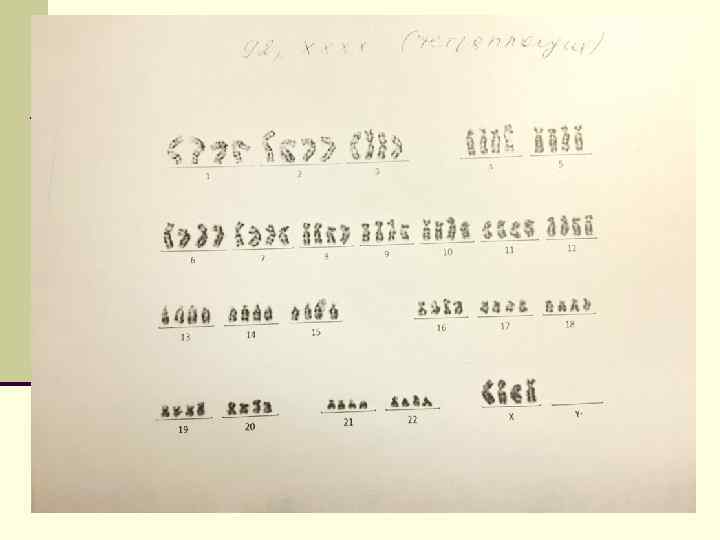 92, xxxx (тетраплоидия)
1 2 3 4 5
6 7 8 9 10 11 12
13 14 15 16 17 18
19 20 21 22 X Y